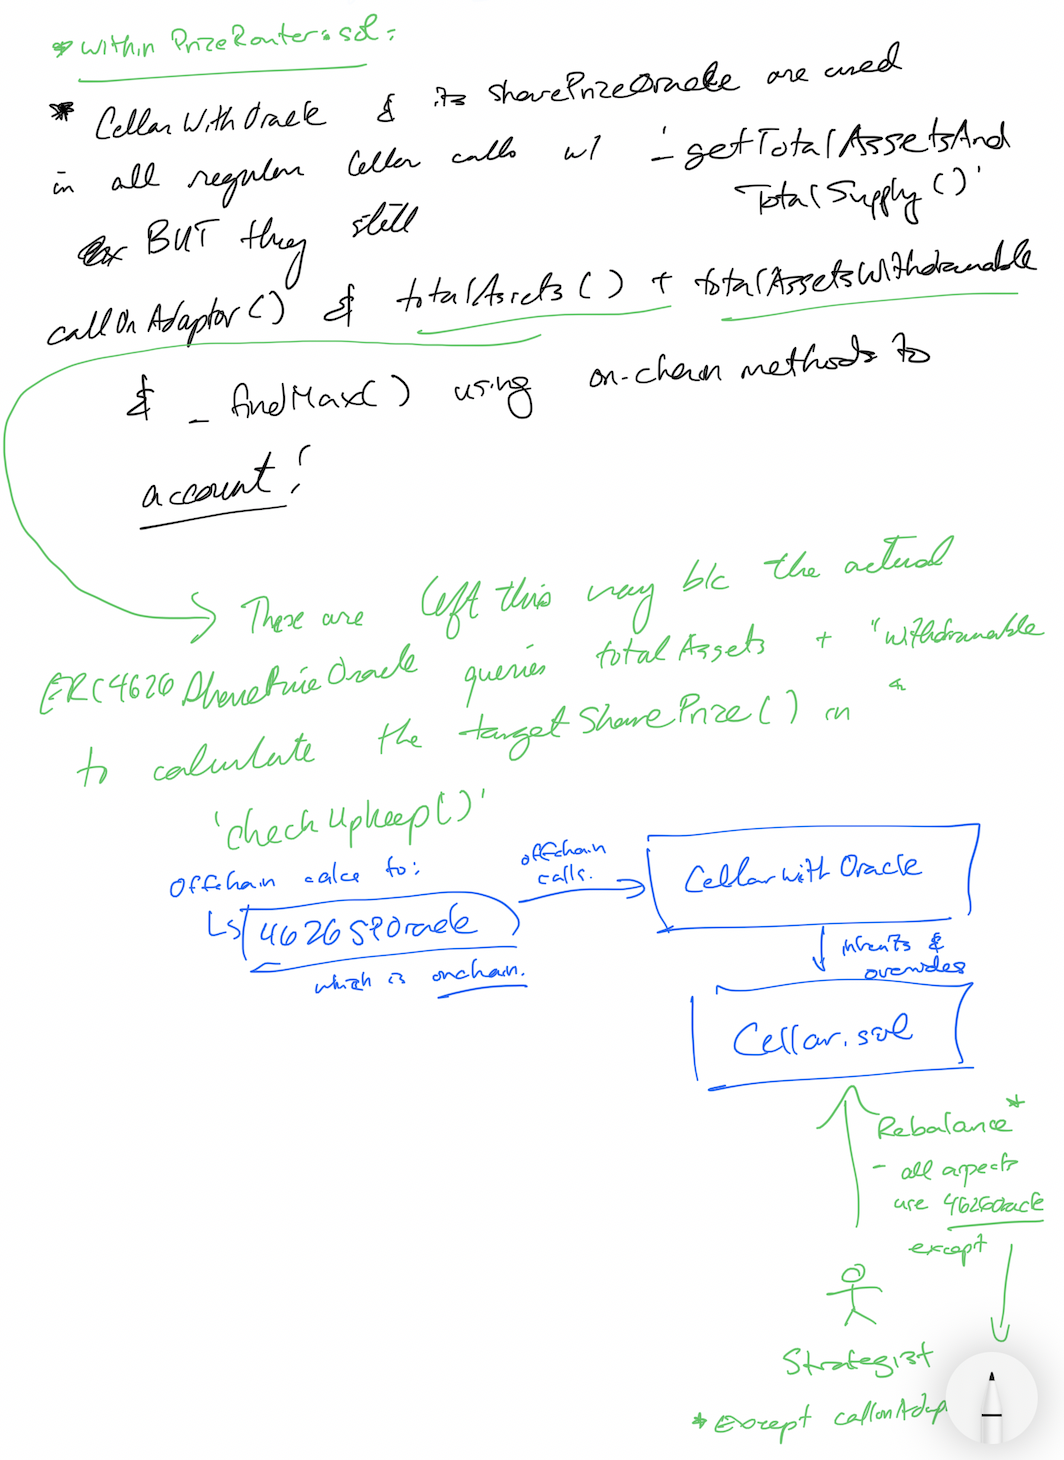 * Within PrizeRouter.sol:
* CellarWithOracle & its sharePrizeOracle are used
in all regular Cellar calls w/ '_getTotalAssetsAnd
TotalSupply()'
BUT they still
callOnAdaptor() & totalAssets() + totalAssetsWithdrawable
& _findMax() using on-chain methods to
account!
These are left this way b/c the actual
ERC4626SharePriceOracle queries totalAssets + "withdrawable"
to calculate the targetSharePrize() in
'checkUpkeep()'
Offchain calcs to:
↳ 4626SPOracle
which is onchain.
offchain
calls.
CellarWithOracle
inherits &
overrides
Cellar.sol
Rebalance*
- all aspects
use 4626Oracle
except
Strategist
* Except callonAdap